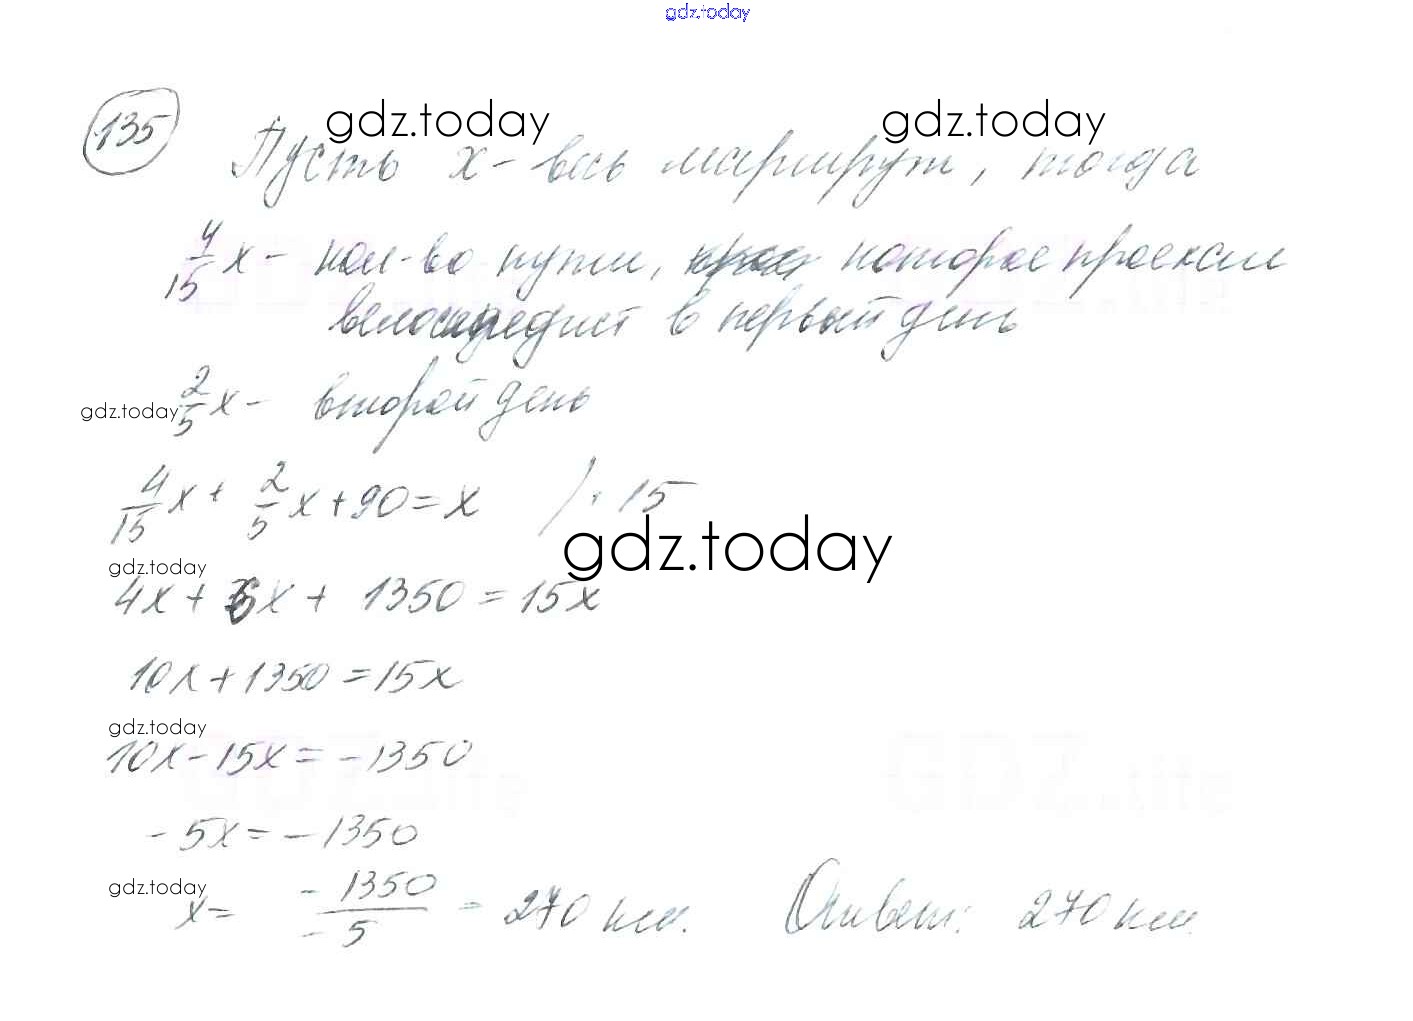 gdz.today
135
gdz.today gdz.today
Пусть x - весь маршрут, тогда
4/15 x - кол-во пути, которое проехал
велосипедист в первый день
gdz.today
2/5 x - второй день
4/15 x + 2/5 x + 90 = x / · 15
gdz.today
gdz.today
4x + 6x + 1350 = 15x
10x + 1350 = 15x
gdz.today
10x - 15x = -1350
- 5x = - 1350
gdz.today
x = - 1350 / - 5 = 270 км. Ответ: 270 км.